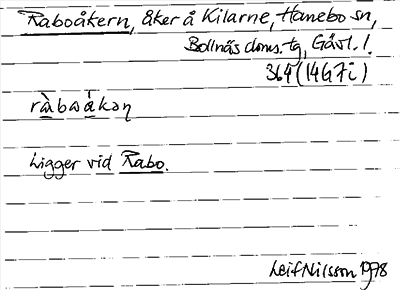 Raboåkern, åker å Kilarne, Hanebo sn,
Bollnäs doms.tg, Gävl. l.
364 (14G7i)
ràbωákəṇ
Ligger vid Rabo.
Leif Nilsson 1978